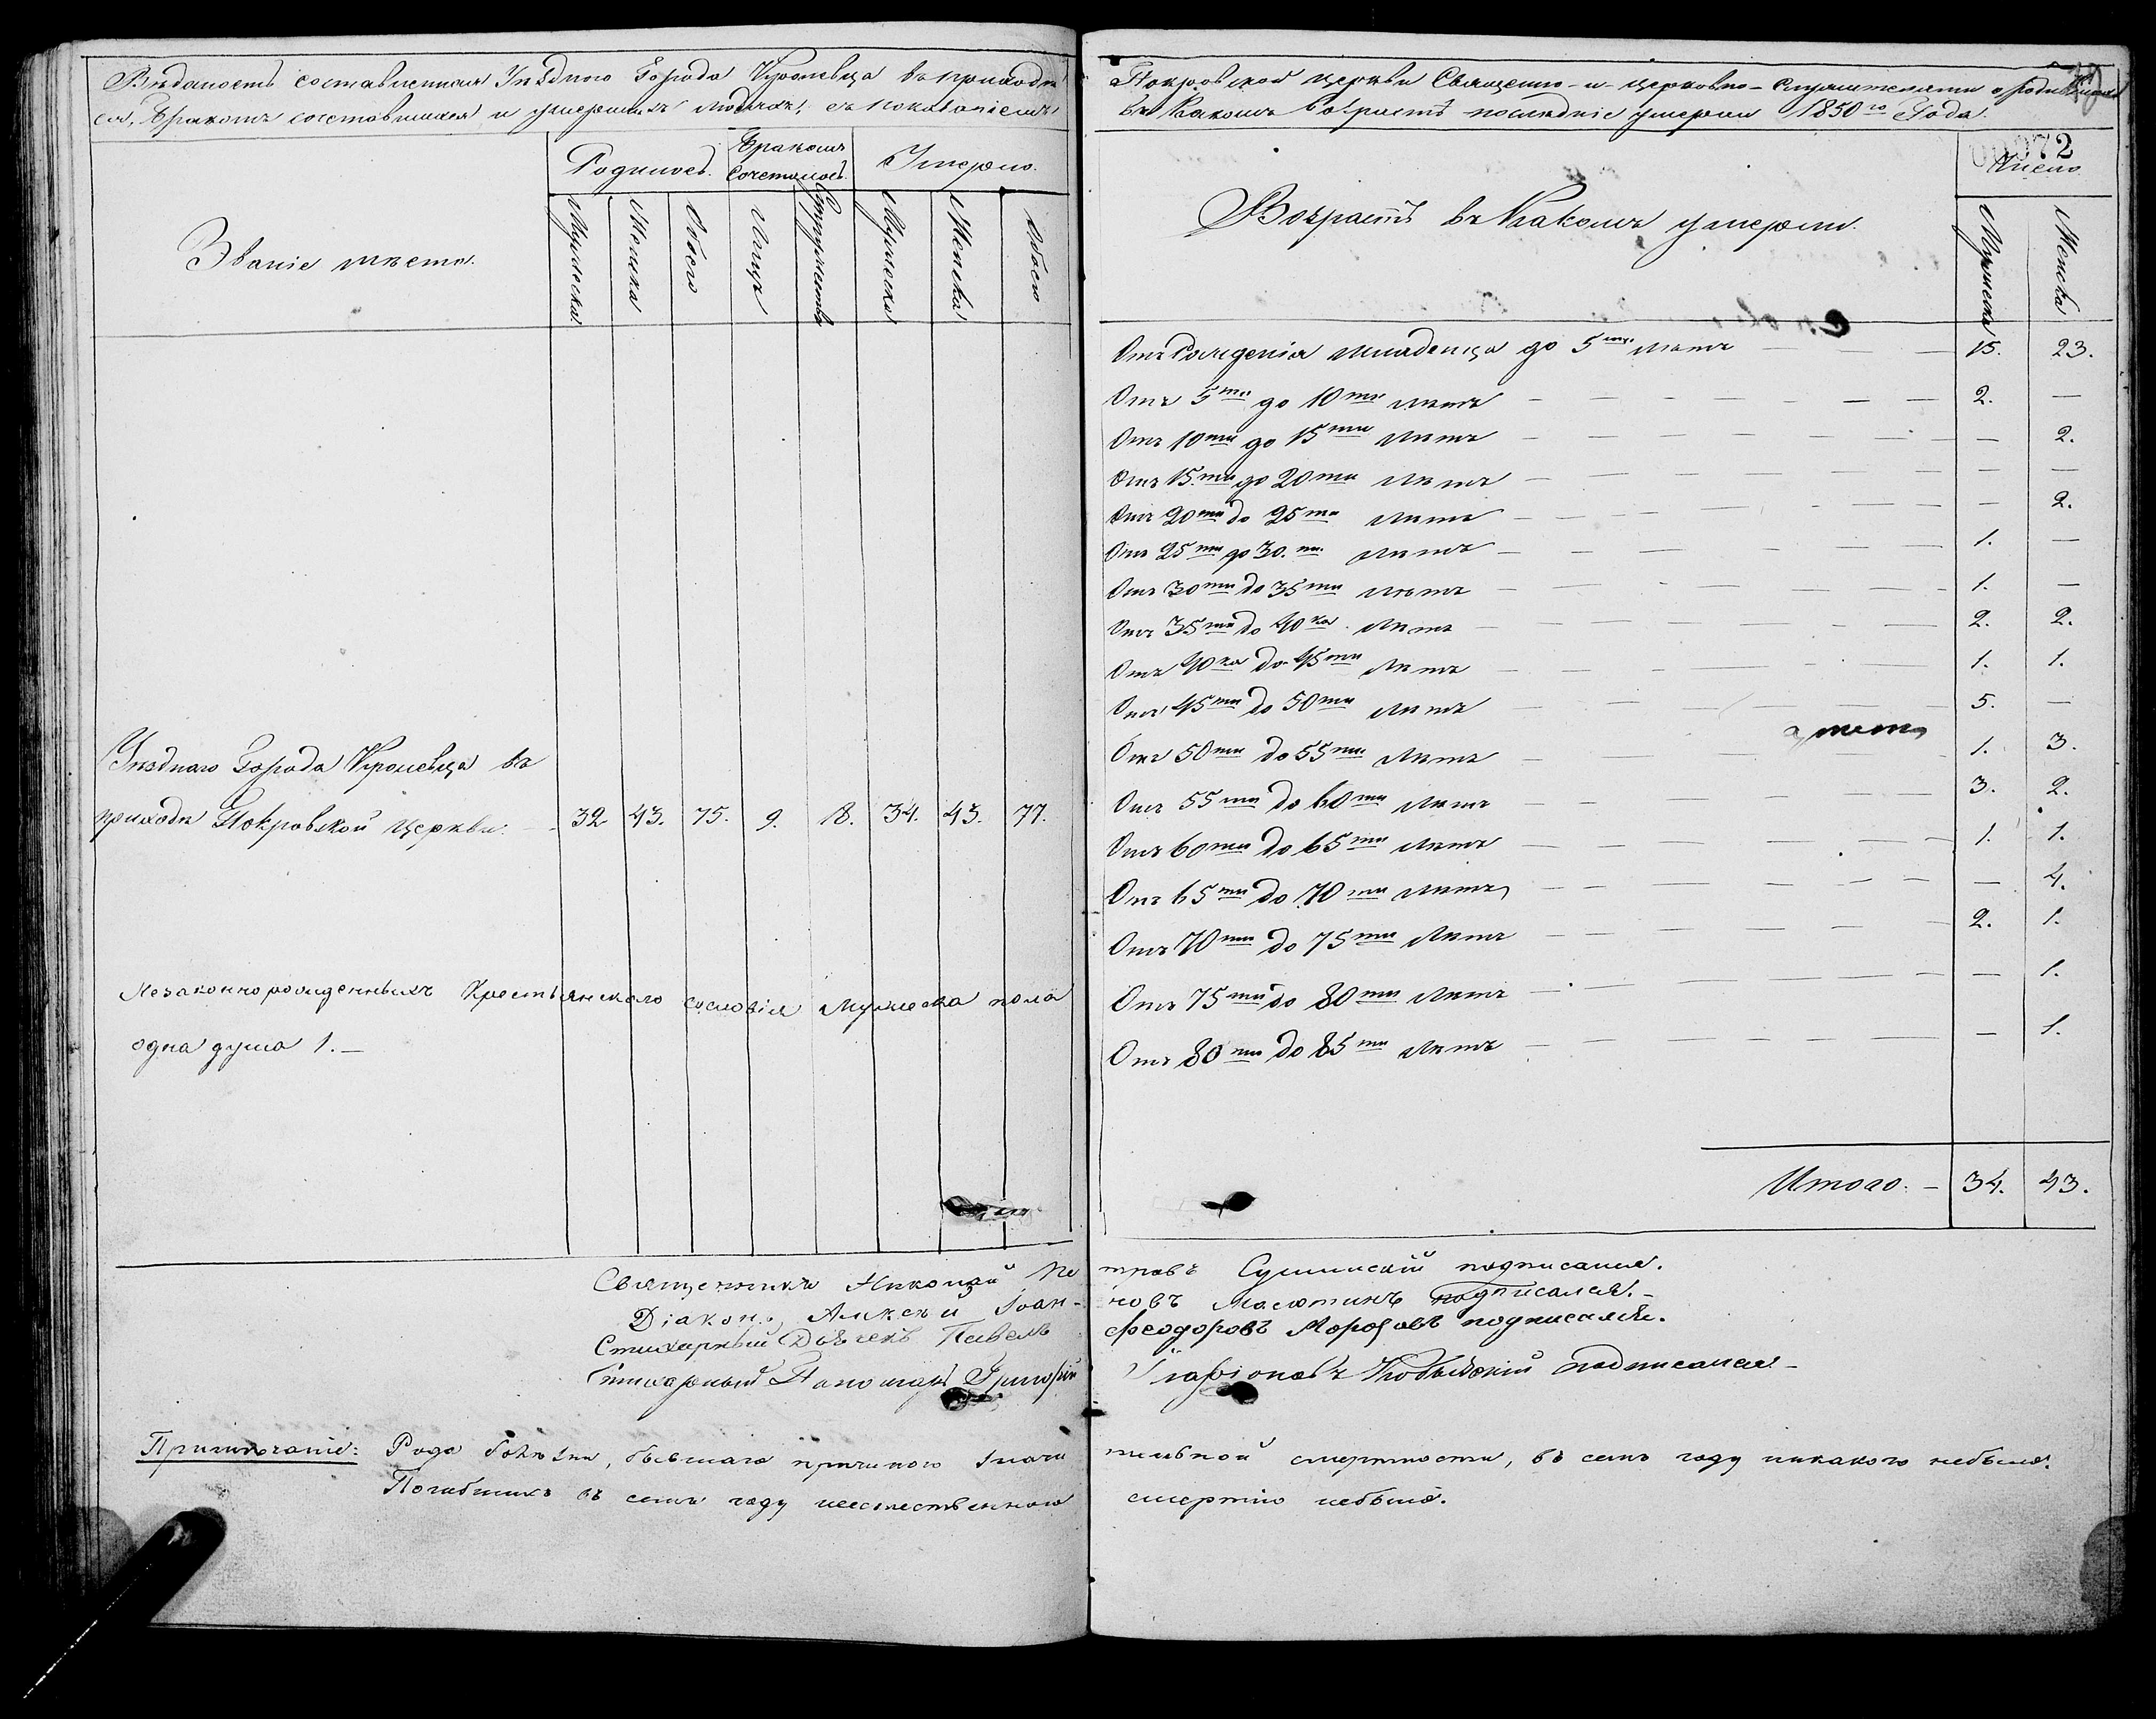 Вѣдомость составленная Уѣзднаго Города Кролевца въ приходѣ
Покровской церкви Священно-и-церковно-служителями о родивших
ся, Бракомъ сочетавшихся и умершихъ людяхъ, съ показаніемъ
въ Какомъ возрастѣ послѣдніе умерли 1850го Года.
72
Званіе мѣста.
Родилось.
Бракомъ Сочеталось.
Умерло.
Мужеска
Женска
Обоего
Лицъ
Супружествъ
Мужеска
Женска
Обоего
Возрастъ въ Какомъ умерли.
Число
Мужеска
Женска
Уѣзднаго Города Кролевца въ
приходѣ Покровской церкви. - 32 43. 75. 9. 18. 34. 43. 77.
Незаконнорожденныхъ Крестьянскаго сословія Мужеска пола
одна душа 1.—
Отъ Рожденія младенца до 5ти лѣтъ — 15. 23.
Отъ 5ти до 10ти лѣтъ — 2. —
Отъ 10ти до 15ти лѣтъ — — 2.
Отъ 15.ти до 20ти лѣтъ — — —
Отъ 20ти до 25ти лѣтъ — — 2.
Отъ 25ти до 30.ти лѣтъ — 1. —
Отъ 30ти до 35ти лѣтъ — 1. —
Отъ 35ти до 40ка лѣтъ — 2. 2.
Отъ 40ка до 45ти лѣтъ — 1. 1.
Отъ 45ти до 50ти лѣтъ — 5. —
Отъ 50ти до 55ти лѣтъ — 1. 3.
Отъ 55ти до 60ти лѣтъ — 3. 2.
Отъ 60ти до 65ти лѣтъ — 1. 1.
Отъ 65ти до 70ти лѣтъ — — 4.
Отъ 70ти до 75ти лѣтъ — 2. 1.
Отъ 75ти до 80ти лѣтъ — — 1.
Отъ 80ти до 85ти лѣтъ — — 1.
Итого. — 34. 43.
Священникъ Николай Петровъ подписался.
Діаконъ Алексѣй Іоанновъ Масютинъ подписался.-
Стихарный Дьячекъ Павелъ Феодоровъ Морозовъ подписался.
Стихарный Пономарь Григорій подписался-
Примѣчаніе: Рода болѣзни, бывшаго причиною значительной смертности, въ семъ году никакого небыло.
Погибшихъ въ семъ году неестественною смертію небыло.